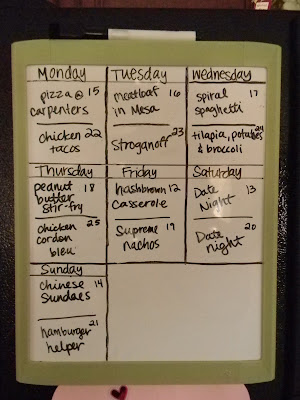 Monday
pizza @ 15
carpenters
chicken 22
tacos
Tuesday
meatloaf 16
in Mesa
Stroganoff 23
Wednesday
spiral 17
spaghetti
tilapia, potatoes 24
& broccoli
Thursday
peanut 18
butter
stir-fry
chicken 25
cordon
bleu
Friday
hashbrown 12
casserole
Supreme 19
nachos
Saturday
Date 13
Night
Date 20
night
Sunday
Chinese 14
Sundaes
hamburger 21
helper